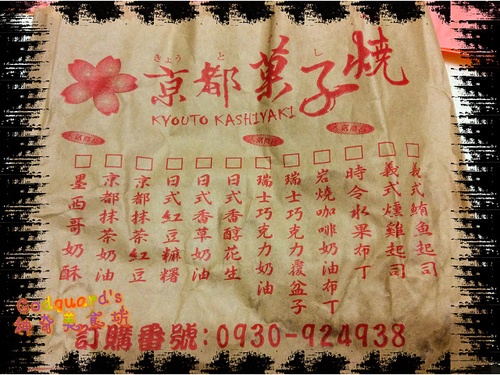 きょうとし
京都菓子燒
KYOUTO KASHIYAKI
人氣商品
人氣商品
人氣商品
□義式鮪魚起司
□義式燻雞起司
□時令水果布丁
□岩燒咖啡奶油布丁
□瑞士巧克力覆盆子
□瑞士巧克力奶油
□日式香醇花生
□日式香草奶油
□日式紅豆麻糬
□京都抹茶紅豆
□京都抹茶奶油
□墨西哥奶酥
訂購番號:0930-924938
Godquard's